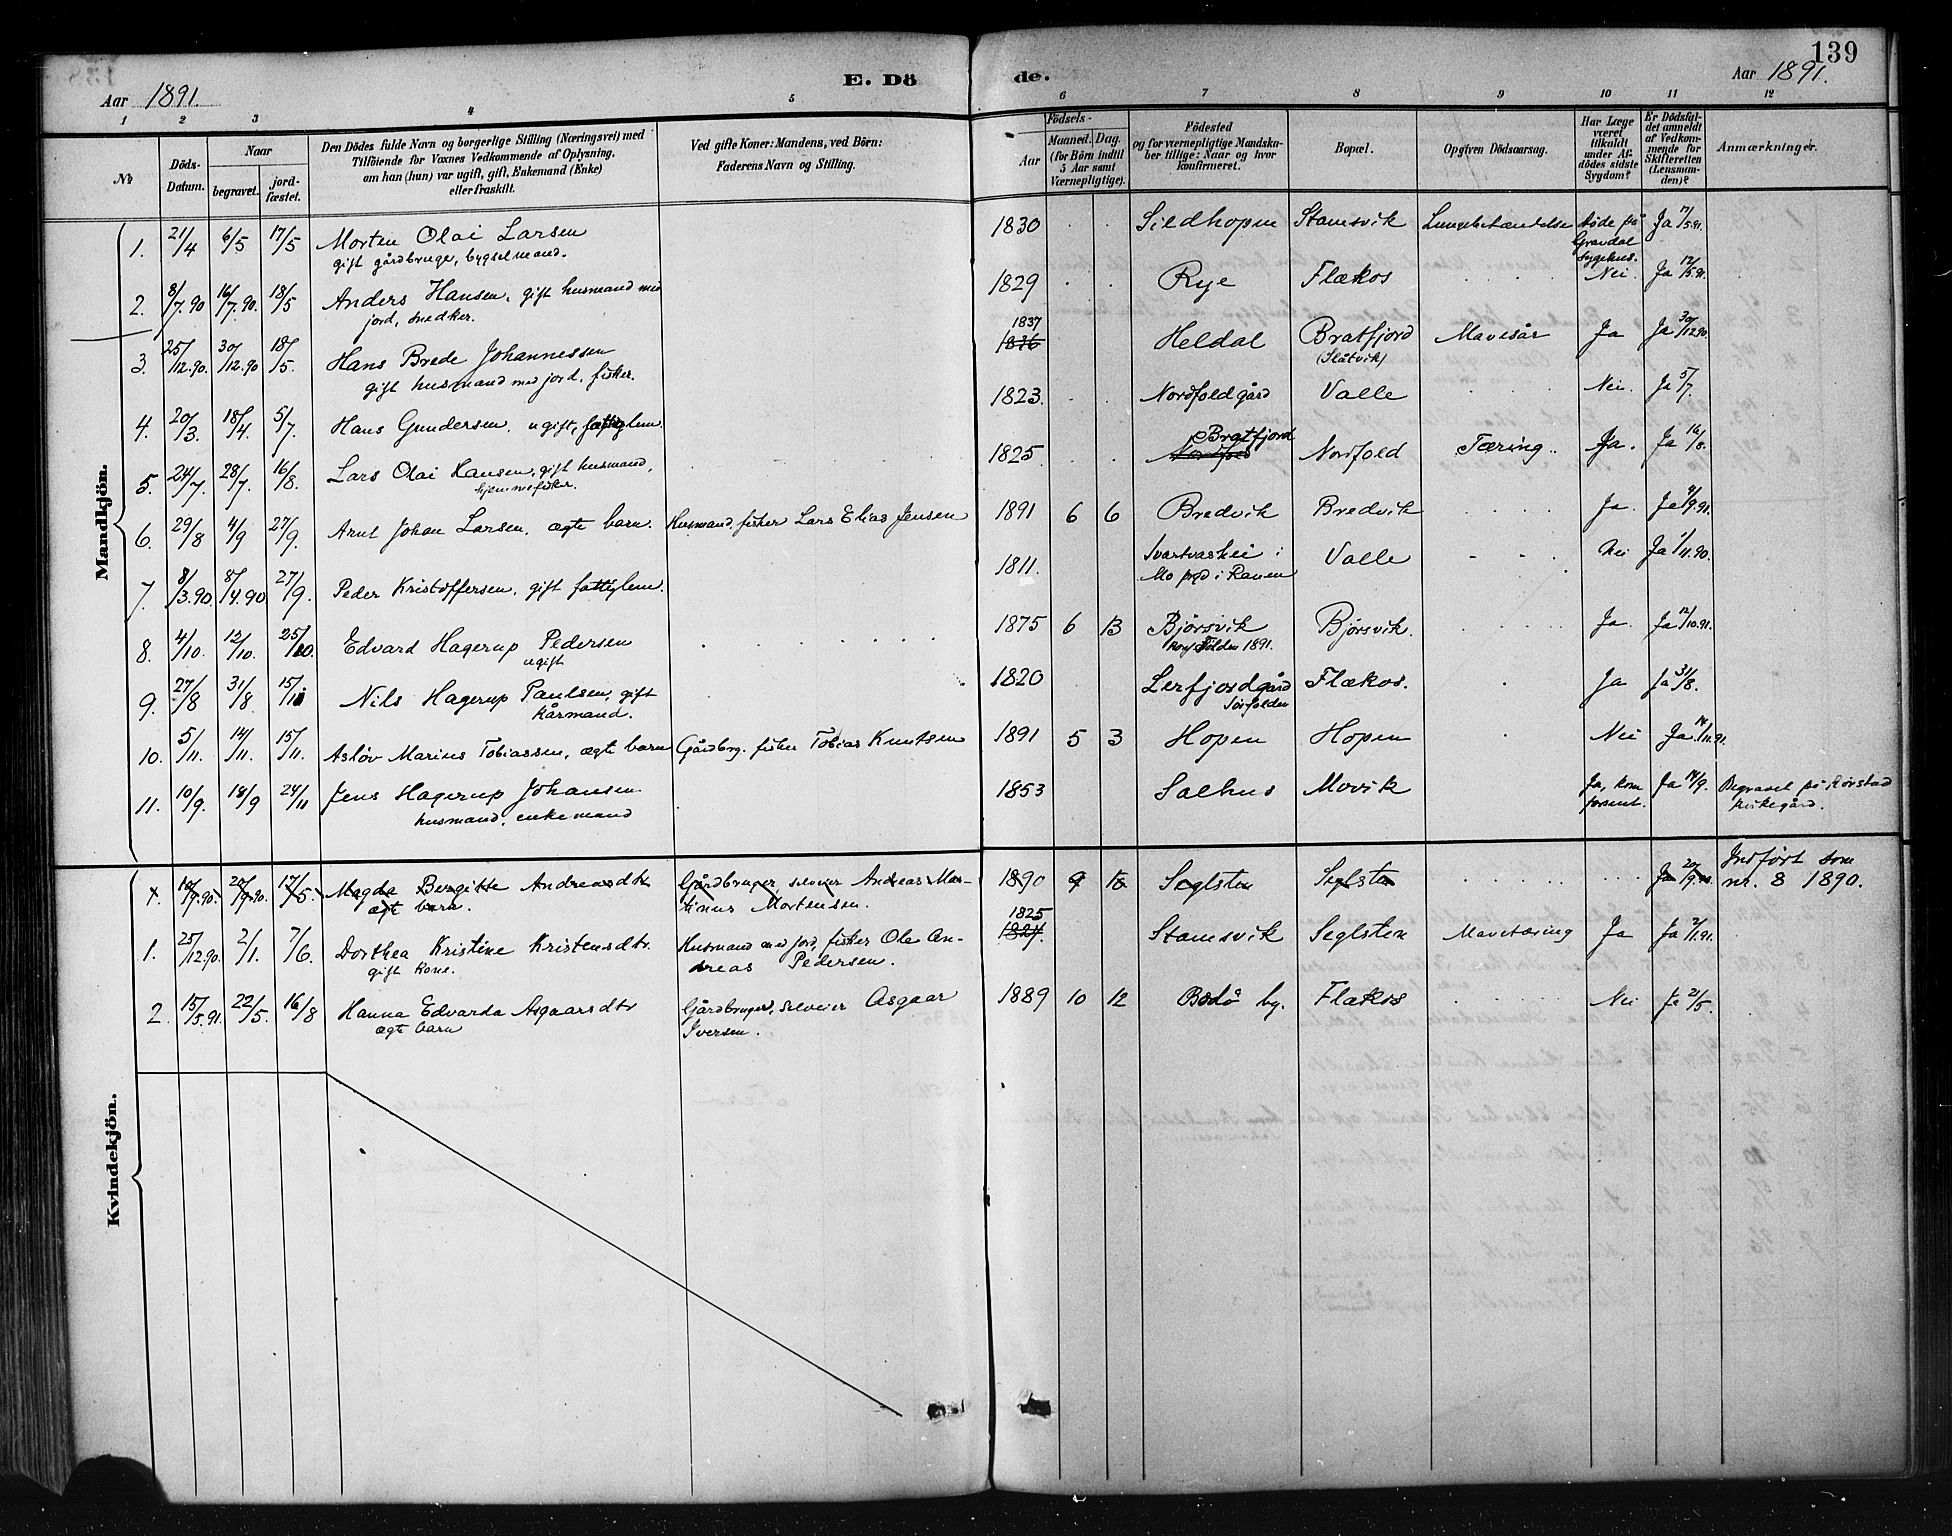 139
Aar 1891.
E. Dö
de.
Aar 1891.
1 2 3 4 5 6 7 8 9 10 11 12
№
Döds-Datum.
Naar
begravet.
jord-fæstet.
Den Dödes fulde Navn og borgerlige Stilling (Næringsvei) med
Tilföiende for Voxnes Vedkommende af Oplysning,
om han (hun) var ugift, gift, Enkemand (Enke)
eller fraskilt.
Ved gifte Koner: Mandens, ved Börn:
Faderens Navn og Stilling.
Födsels-
Aar
Maaned.
Dag.
(for Börn indtil
5 Aar samt
Værnepligtige).
Födested
og for værnepligtige Mandska-
ber tillige: Naar og hvor
konfirmeret.
Bopæl.
Opgiven Dödsaarsag.
Har Læge
været
tilkaldt
under Af-
dödes sidste
Sygdom?
Er Dödsfal-
det anmeldt
af Vedkom-
mende for
Skifteretten
(Lensman-
den)?
Anmærkninger.
Mandkjön.
1. 21/4 6/5 17/5 Morten Olai Larsen 1830 Sildhopen Stamsvik Lungebetændelse døde på Ja 17/5 91.
gift gårdbruger, bygselmand. Gravdal
sygehus.
2. 8/7.90 16/7.90 18/5 Anders Hansen, gift husmand med 1829 Rye Flækos Nei Ja 12/5 91.
jord, snedker.
3. 25/12.90. 30/12.90 18/5. Hans Brede Johannessen 1837 1836 Heldal Bratfjord Mavesår Ja Ja 30/12 90.
gift husmand med jord, fisker. (Slåtvik)
4. 20/3. 18/4. 5/7 Hans Gundersen, ugift, fattiglem 1823. Nordfoldgård Valle Nei Ja 5/7.
5. 24/7. 28/7. 16/8. Lars Olai Hansen, gift husmand, 1825 Bratfjord Nordfold Nordfold Tæring. Ja. Ja 16/8.
hjemmefisker.
6. 29/8 4/9 27/9. Arnt Johan Larsen, ægte barn. Husmand, fisker Lars Elias Jensen 1891 6 6 Bredvik Bredvik Ja. Ja 4/9.91.
7. 8/3.90. 8/4.90 27/9. Peder Kristoffersen, gift fattiglem. 1811. Svartvashei i Valle Nei Ja 1/11.90.
Mo prgd i Ranen
8. 4/10. 12/10. 25/10. Edvard Hagerup Pedersen 1875 6 13 Bjørsvik Bjørsvik. Ja. Ja 12/10.91.
ugift Folden 1891.
9. 27/8 31/8. 15/11 Nils Hagerup Paulsen, gift 1820 Lerfjordgård Flækos. Ja Ja 31/8.
kårmand. Sørfolden
10. 5/11. 14/11. 15/11. Asløv Marius Tobiassen, ægte barn Gårdbrg. fisker Tobias Knutsen 1891 5 3 Hopen Hopen Nei Ja 14/11.91.
11. 10/9. 18/9 24/11 Jens Hagerup Johansen 1853 Salhus Movik Ja, kom Ja 14/9. Begravet på Rørstad
husmand, enkemand forsent. kirkegård.
Kvindekjön.
Magda Bergitte Andreasdtr Gårdbruger, selveier Andreas Mar- 1890 9 Seglsten Seglsten Indført som
ægte barn. tinus Mortensen. nr. 8 1890.
1. 25/12.90. 2/1. 7/6. Dorthea Kristine Kristensdtr. Husmand med jord, fisker Ole An- 1825 1827. Stamsvik Seglsten Mavetæring Ja Ja 2/1.91.
gift kone. dreas Pedersen.
2. 15/5.91. 22/5. 16/8 Hanna Edvarda Asgaarsdtr Gårdbruger, selveier Asgaar 1889 10 12 Bodø by. Flækos Nei Ja 21/5.
ægte barn Iversen.